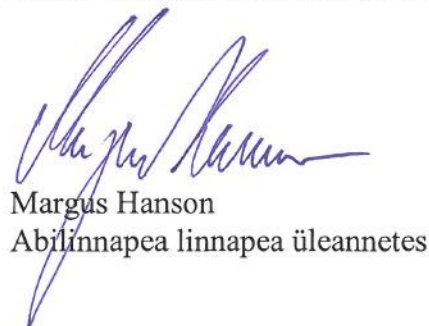 Margus Hanson
Abilinnapea linnapea üleannetes